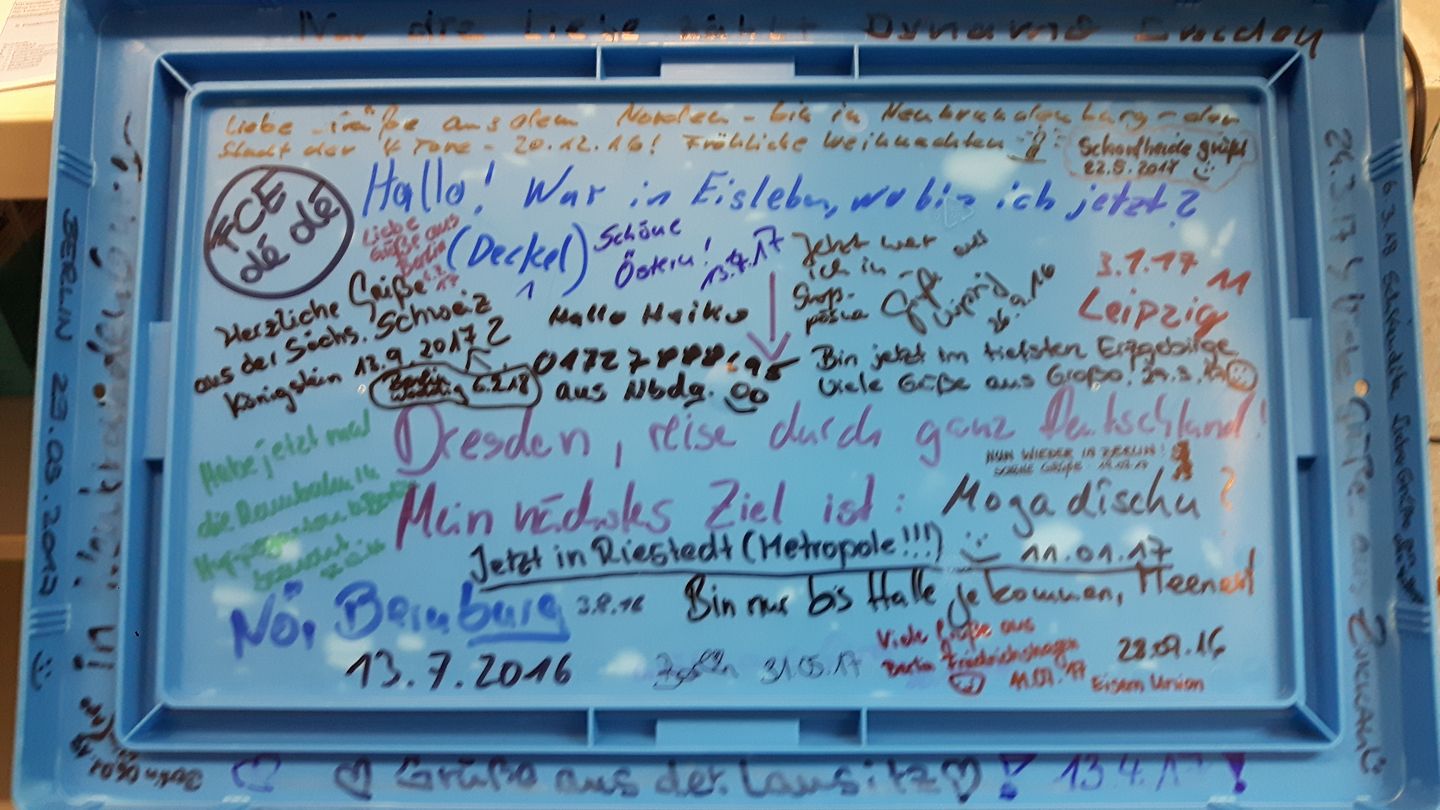 Nur die Liebe zählt Dynamo Dresden
Liebe Grüße aus dem Norden - bin in Neubrandenburg - der
Stadt der 4 Tore - 20.12.16! Fröhliche Weihnachten
Schorfheide grüßt
22.5.2017
FCE
dé dé
Hallo! War in Eisleben, wo bin ich jetzt?
(Deckel)
Liebe
Grüße aus
Berlin
Schöne
Ostern!
13.4.17
Jetzt war
ich in
Gruß
Leipzig
26.9.16
3.1.17
Leipzig
Herzliche Grüße
aus der Sächs. Schweiz
Königstein 13.9.2017
Berlin
6.2.18
Hallo Heiko
0172 7
aus Nbdg.
Bin jetzt im tiefsten Erzgebirge
Viele Grüße aus Großo.
Dresden, reise durch ganz Deutschland!
NUN WIEDER IN BERLIN!
Mein nächstes Ziel ist: Mogadischu ?
Habe jetzt mal
die
Jetzt in Riestedt (Metropole!!!) 11.01.17
Nö, Bernburg 3.8.16
13.7.2016
Bin nur bis Halle jekommen, Meenen!
31.05.17
Viele Grüße aus
Berlin Friedrichshagen
11.07.17
28.09.16
Eisern Union
♡ Grüße aus der Lausitz ♡ ! 13.4.17 !
BERLIN 23.03.2017
24.3.17
Grüße aus Zwickau
6.3.18 Schkeuditz